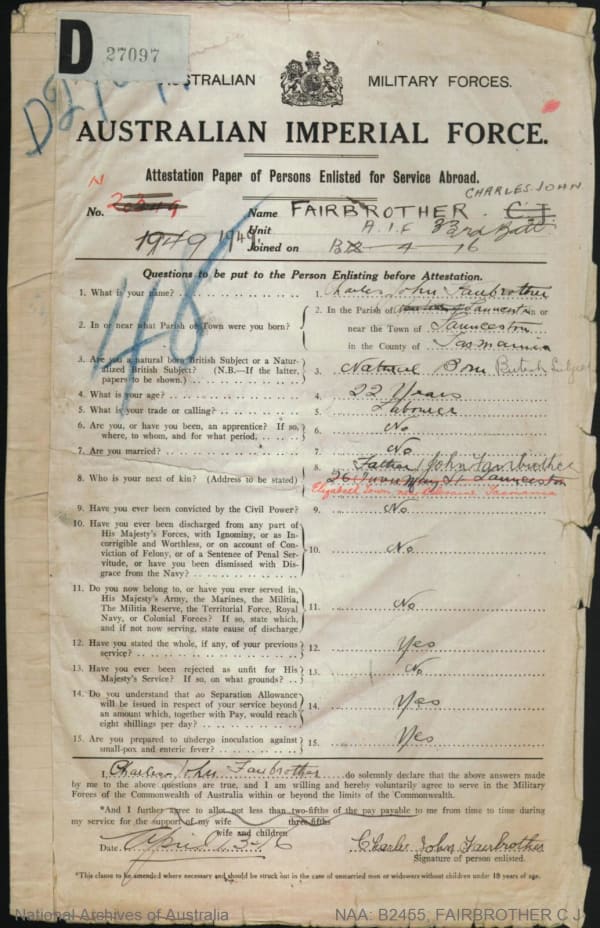 D 27097
AUSTRALIAN MILITARY FORCES.
AUSTRALIAN IMPERIAL FORCE.
Attestation Paper of Persons Enlisted for Service Abroad.
CHARLES JOHN
No. 1949 1949 Name FAIRBROTHER C J
Unit A.I.F
Joined on 4 16
48
Questions to be put to the Person Enlisting before Attestation.
1. What is your name? 1. Charles John Fairbrother
2. In or near what Parish or Town were you born? 2. In the Parish of Launceston in or
near the Town of Launceston
in the County of Tasmania
3. Are you a natural born British Subject or a Natur-
alized British Subject? (N.B.—If the latter,
papers to be shown.) 3. Natural Born British Subject
4. What is your age? 4. 22 Years
5. What is your trade or calling? 5. Labourer
6. Are you, or have you been, an apprentice? If so,
where, to whom, and for what period. 6. No
7. Are you married? 7. No
8. Who is your next of kin? (Address to be stated) 8. Father John Fairbrother
St Launceston
Elizabeth Town Tasmania
9. Have you ever been convicted by the Civil Power? 9. No
10. Have you ever been discharged from any part of
His Majesty's Forces, with Ignominy, or as In-
corrigible and Worthless, or on account of Con-
viction of Felony, or of a Sentence of Penal Ser-
vitude, or have you been Dismissed with Dis-
grace from the Navy? 10. No
11. Do you now belong to, or have you ever served in,
His Majesty's Army, the Marines, the Militia,
The Militia Reserve, the Territorial Force, Royal
Navy, or Colonial Forces? If so, state which,
and if not now serving, state cause of discharge 11. No
12. Have you stated the whole, if any, of your previous
service? 12. Yes
13. Have you ever been rejected as unfit for His
Majesty's Service? If so, on what grounds? 13. No
14. Do you understand that no Separation Allowance
will be issued in respect of your service beyond
an amount which, together with Pay, would reach
eight shillings per day? 14. Yes
15. Are you prepared to undergo inoculation against
small-pox and enteric fever? 15. Yes
I, Charles John Fairbrother do solemnly declare that the above answers made
by me to the above questions are true, and I am willing and hereby voluntarily agree to serve in the Military
Forces of the Commonwealth of Australia within or beyond the limits of the Commonwealth.
*And I further agree to allot not less than two-fifths of the pay payable to me from time to time during
three-fifths
my service for the support of my wife
wife and children
Date April Charles John Fairbrother
Signature of person enlisted.
*This clause to be amended where necessary and should be struck out in the case of unmarried men or widowers without children under 18 years of age.
National Archives of Australia NAA: B2455, FAIRBROTHER C J